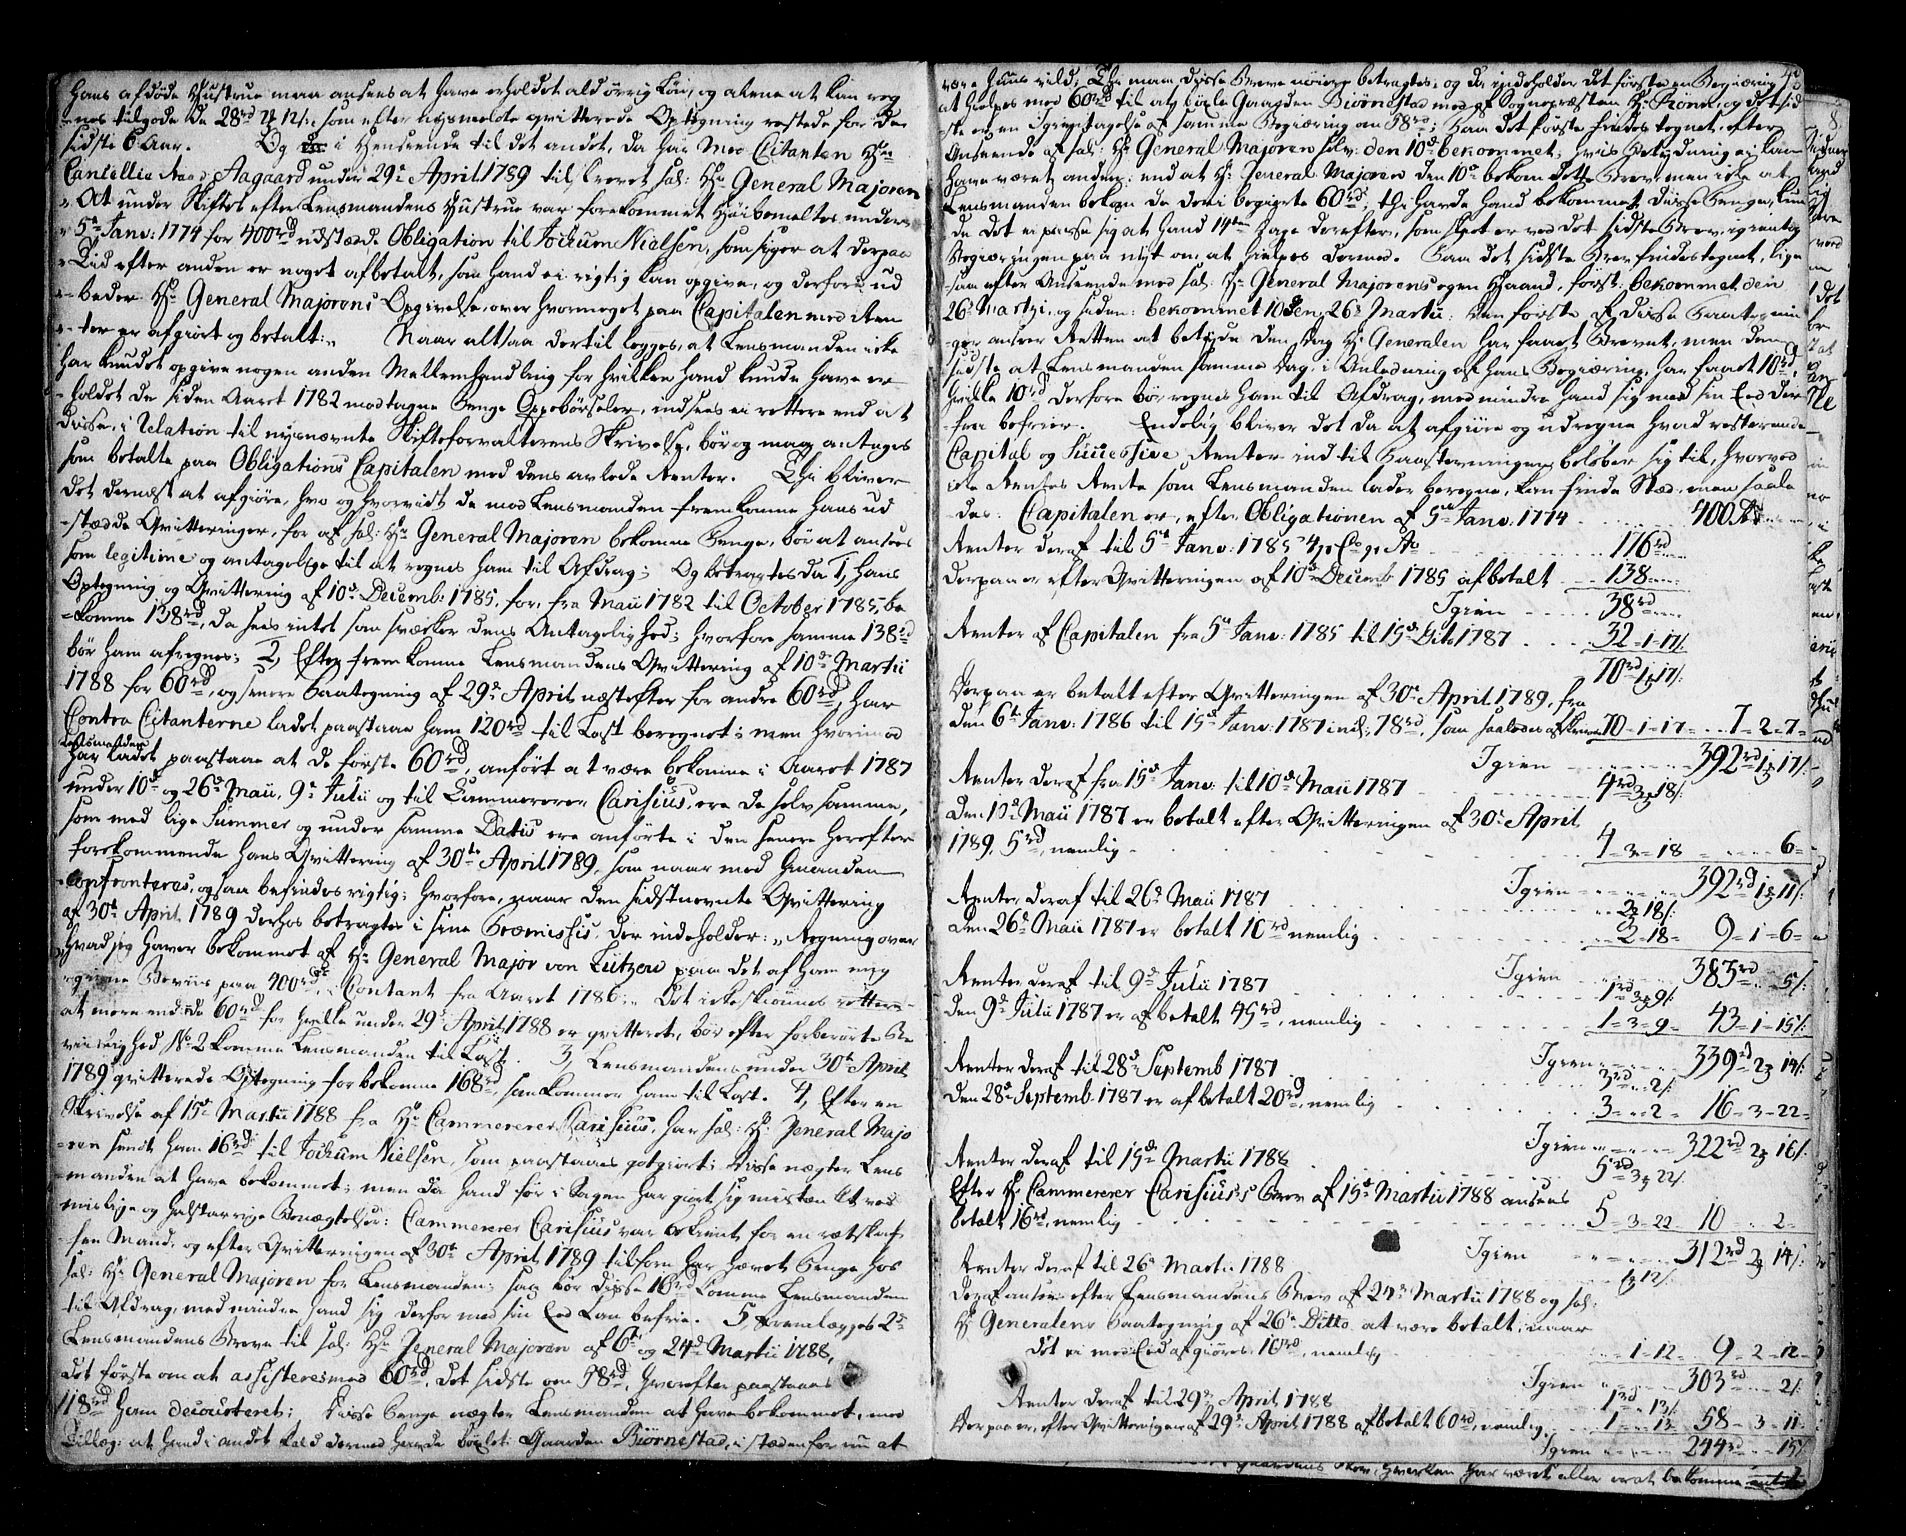 Hans afdøde Hustrue maa ansees at have erholdet ald øvrig Løn, og alene at kan reg
-nes tilgode de 28rd 2# 12/: som efter nysmeldte qvitterede Optegning restede for de
sidste 6 Aar. Og i Henseende til det andet, da har med Citanten Hr:
Cancellie Raad Aagaard under 29de April 1789 tilskrevet sal: Hr: General Majoren
"At under Skiftet efter Lensmandens Hustrue var forekommet Høibemeltes under
" 5te Janv: 1774 for 400rd udstædde Obligation til Jochum Nielsen, som siger at derpaa
" Tid efter anden er noget afbetalt, som hand ei rigtig kan opgive, og derfore ud
"-beder Hr: General Majorens Opgivelse, over hvormeget paa Capitalen med Ren
"-ter er afgiort og betalt:" Naar altsaa dertil legges, at Lensmanden icke
har kundet opgive nogen anden Mellemhandling for hvilken hand kunde have er
-holdet de siden Aaret 1782 modtagne Penge Oppebørseler, indsees ei rettere end at
disse, i Relation til nysnævnte Skifteforvalterens Skrivelse, bør og maa antages
som betalte paa Obligations Capitalen med dens avlede Renter. Thi bliver
det dernæst at afgiøre, hvo og hvorvidt de mod Lensmanden fremkomne Hans ud
-stædde Qvitteringer, for af sal: Hr: General Majoren bekomne Penge, bør at ansees
som legitime og antagelige til at regnes ham til Afdrag; Og betragtes da 1, Hans
Optegning og Qvittering af 10de Decemb: 1785, for fra Maii 1782 til October 1785, be
-komne 138rd, da sees intet som svækker dens Antagelighed; hvorfore samme 138rd
bør ham afregnes; 2, Efter fremkomne Lensmandens Qvittering af 10de Martii
1788 for 60rd, og senere Paategning af 29de April næstefter for andre 60rd, har
Contra Citanterne ladet paastaae ham 120rd til Last beregnet; men hvorimod
Lensmanden
har ladet paastaae at de første 60rd, anført at være bekomne i Aaret 1787
under 10de og 26de Maii, 9de Julii og til Cammererer Carisius, ere de selv samme,
som med lige Summer og under samme Datis ere anførte i den senere herefter
forekommende Hans Qvittering af 30te April 1789, som naar med hinanden
confronteres, ogsaa befindes rigtig; hvorfore, naar den sidstnevnte Qvittering
af 30te April 1789 derhos betragtes i sine Præmissis, der indeholder: "Regning over
hvad jeg haver bekommet af Hr: General Major von Lützow paa det af ham mig
givne Beviis paa 400rd, Contant fra Aaret 1786:" Det icke skiønnes rettere
at mere end de 60rd for hvilke under 29de April 1788 er qvitteret, bør efter forberørte Be
viislighed No 2 komme Lensmanden til Last. 3, Lensmandens under 30te April
1789 qvitterede Optegning for bekomne 168rd, saa kommer ham til Last. 4, Efter en
Skrivelse af 15de Martii 1788 fra Hr: Cammererer Carisius, har sal: Hr: General Majo
-ren sendt ham 16rd til Jochum Nielsen, som paastaaes godtgiort; disse nægter Lens
-manden at have bekommet; men da hand før i Sagen har giort sig mistænkt ved
mislige og halstarrige Benægtelser: Cammererer Carisius var bekiendt for en retskaf
-fen Mand, og efter Qvitteringen af 30te April 1789 tilforn har hævet Penge hos
sal: Hr: General Majoren for Lensmanden; saa bør disse 16rd komme Lensmanden
til Afdrag, med mindre hand sig derfor med sin Eed kan befrie. 5, Fremlægges 2de
Lensmandens Breve til sal: Hr: General Majoren af 6te og 24de Martii 1788,
det første om at assisteres med 60rd, det sidste om 58rd, hvorefter paastaaes
118rd ham decourteret; disse Penge nægter Lensmanden at have bekommet, med
Tillæg: at hand i andet Fald dermed havde bøxlet Gaarden Biørnestad, i stæden for nu at
være Huus vild; Thi maa disse Breve nøiere betragtes; og da indeholder det første en Begiæring
at hielpes med 60rd til at bøxle Gaarden Biørnestad med af Sognepræsten Hr: , og det sid
-ste er en igientagelse af samme Begiæring om 58rd; Paa det første findes tegnet, efter
Anseende af sal: Hr: General Majoren selv: den 10de bekommet; hvis betydning ei kan
have været anden, end at Hr: General Majoren den 10de bekom dette Brev, men icke at
Lensmanden bekom de deri begierte 60rd; thi havde hand bekommet disse Penge, kun
de det ei passe sig at hand 14ten Dage derefter, som skeet er ved det sidste Brev, igientog
Begiæringen paa nyt om at hielpes dermed. Paa det sidste Brev findes tegnet, lige
-saa efter Anseende med sal: Hr: General Majorens egen Haand, først: bekommet den
26de Martii, og siden: bekommet 10 den 26de Martii: den første af disse Paategnin
-ger anseer Retten at betyde den Dag Hr: Generalen har faaet Brevet, men den
sidste at Lensmanden samme Dag, i Anledning af hans Begiæring, har faaet 10rd,
hvilke 10rd derfore bør regnes ham til Afdrag, med mindre hand sig med sin Eed der
-fra befrier. Endelig bliver det da at afgiøre og udregne hvad resterende
Capital og Successive Renter ind til Paastevningen beløber sig til, hvorved
icke Rentes Rente som Lensmanden lader beregne, kan finde Stæd, men saale
des: Capitalen er, efter Obligationen af 5te Janv: 1774 . . . 400rd
Renter deraf til 5te Janv: 1785 4 pr Cto pr Ao . . . 176rd
derpaa er efter Qvitteringen af 10de Decemb: 1785 afbetalt . . . 138
Igien . . . 38rd
Renter af Capitalen fra 5te Janv: 1785 til 15de Dito 1787 . . . 32-1-17/:
70rd 1# 17/:
Derpaa er betalt efter Qvitteringen af 30te April 1789, fra
den 6te Janv: 1786 til 15de Janv: 1787 incl: 78rd, som saaledes afskrives 70-1-17 . . 7-2-7
Igien . . . 392rd 1# 17/:
Renter deraf fra 15de Janv: til 10de Maii 1787 . . . 4rd 3# 18/:
den 10de Maii 1787 er betalt efter Qvitteringen af 30te April
1789, 5rd, nemlig . . . 4-3-18 . . . 6
Igien . . . 392rd 1# 11/:
Renter deraf til 26de Maii 1787 . . . 2# 18/:
den 26de Maii 1787 er betalt 10rd nemlig . . . 2-18 9-1-6
Igien . . . 383rd . . 5/:
Renter deraf til 9de Julii 1787 . . . 1rd 3# 9/:
den 9de Julii 1787 er afbetalt 45rd, nemlig . . . 1-3-9 43-1-15/:
Igien . . . 339rd 2# 14/:
Renter deraf til 28de Septemb 1787 . . . 3rd . . 2/:
den 28de Septemb: 1787 er afbetalt 20rd, nemlig . . . 3-..-2 16-3-22
Igien . . . 322rd 2# 16/:
Renter deraf til 15de Martii 1788 . . . 5rd 3# 22/:
Efter Hr: Cammererer Carisius's Brev af 15de Martii 1788 ansees
betalt 16rd, nemlig . . . 5-3-22 10 . . 2
Igien . . . 312rd 2# 14/:
Renter deraf til 26de Martii 1788 . . . 1# 12/:
Deraf ansees efter Lensmandens Brev af 24de Martii 1788 og sal:
Hr: Generalens Paategning af 26de Ditto at være betalt, naar
det ei med Eed afgiøres 10rd, nemlig . . . 1-12 9-2-12
Igien . . . 303rd . . 2/:
Renter deraf til 29de April 1788 . . . 1rd . . 13/:
Derpaa er, efter Qvitteringen af 29de April 1788 afbetalt 60rd, nemlig . . 1-..-13 58-3-11
Igien . . . 244rd . . 15/:
Brev, hverken har været eller er at bekomme